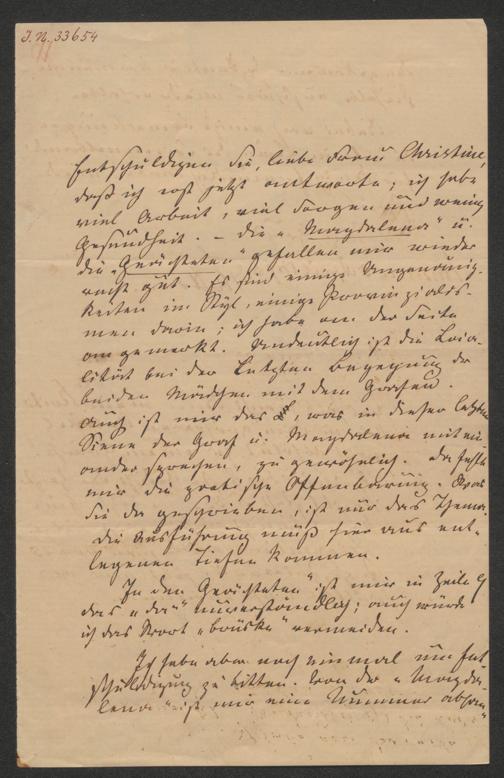 J. N. 33654
Entschuldigen Sie, liebe Frau Christine,
daß ich erst jetzt antworte; ich habe
viel Arbeit, viel Sorgen und wenig
Gesundheit. – Die „Magdalena" u.
die „Geächteten" gefallen mir wieder
recht gut. Es sind einige Ungenauig-
keiten im Styl, einige Provinzialis-
men darin; ich habe an der Seite
angemerkt. Undeutlich ist die Loca-
lität bei der Letzten Begegnung der
beiden Mädchen mit dem Grafen.
Auch ist mir das, was in dieser letzten
Scene der Graf u. Magdalena mitein-
ander sprechen, zu gewöhnlich. Da fehlt
mir die poetische Offenbarung. Was
Sie da geschrieben, ist nur das Thema.
Die Ausführung muß hier aus ent-
legenen Tiefen kommen.
In den „Geächteten" ist mir in Zeile 9
das „da" unverständlich; auch würde
ich das Wort vermeiden.
Ich habe aber noch einmal um Ent-
schuldigung zu bitten. Von der „Magda-
lena" ist mir eine Nummer abhan-